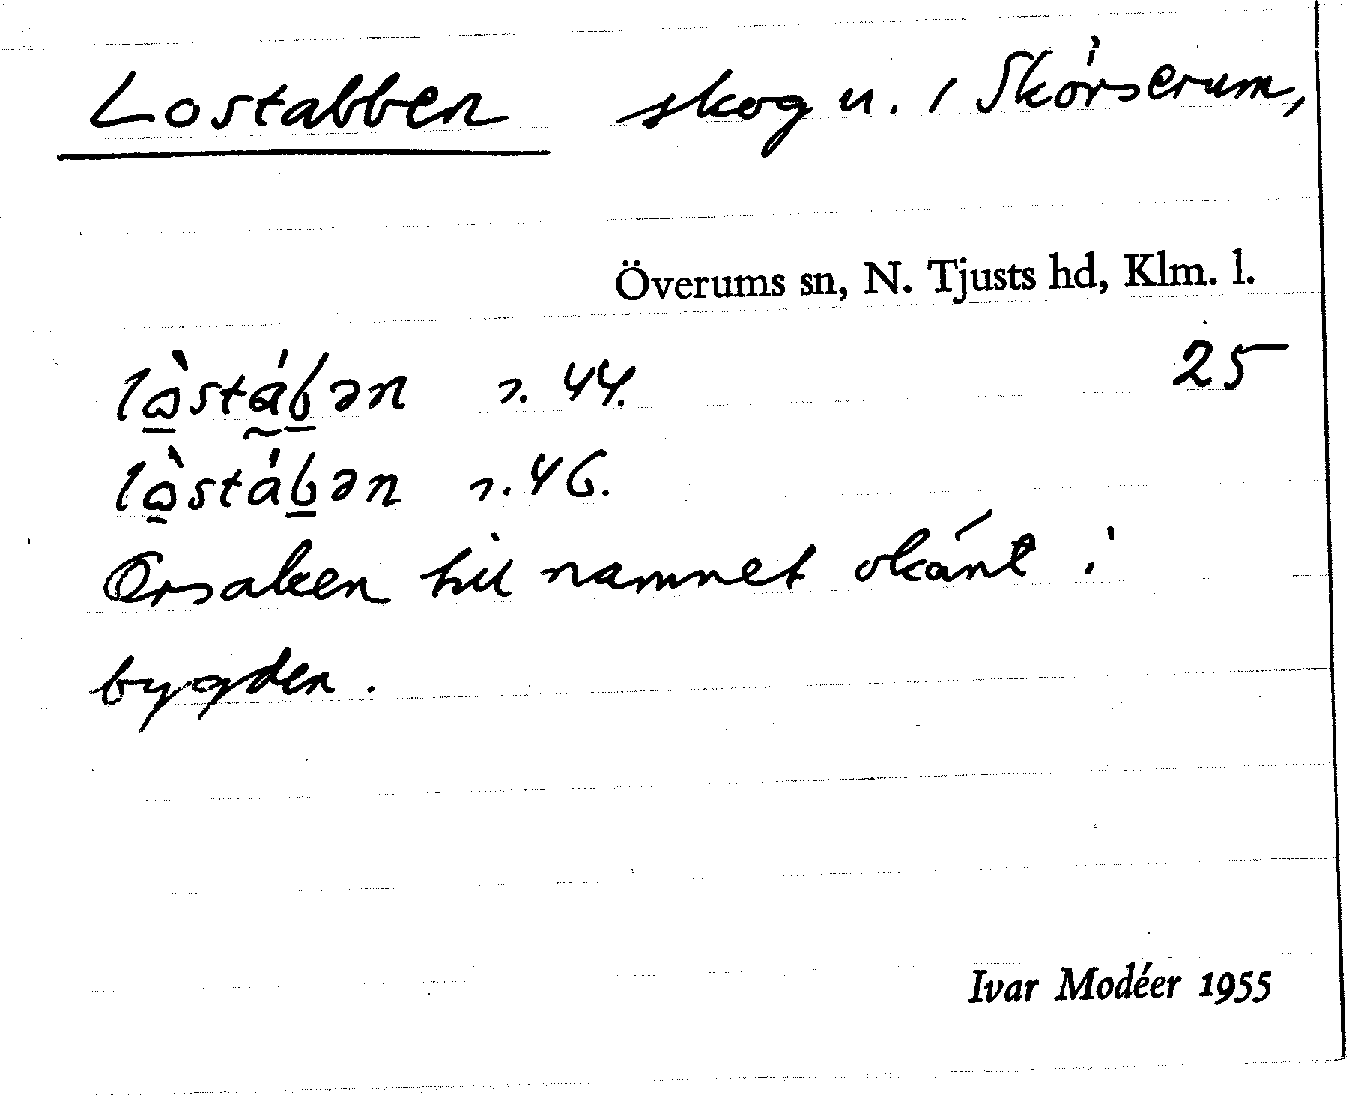 Lostabben skog u. / Skörserum,
Överums sn, N. Tjusts hd, Klm. l.
25
lò̱stá̰ḇən r. 44.
lò̱stáḇən r. 46.
Orsaken till namnet okänt i
bygden.
Ivar Modéer 1955